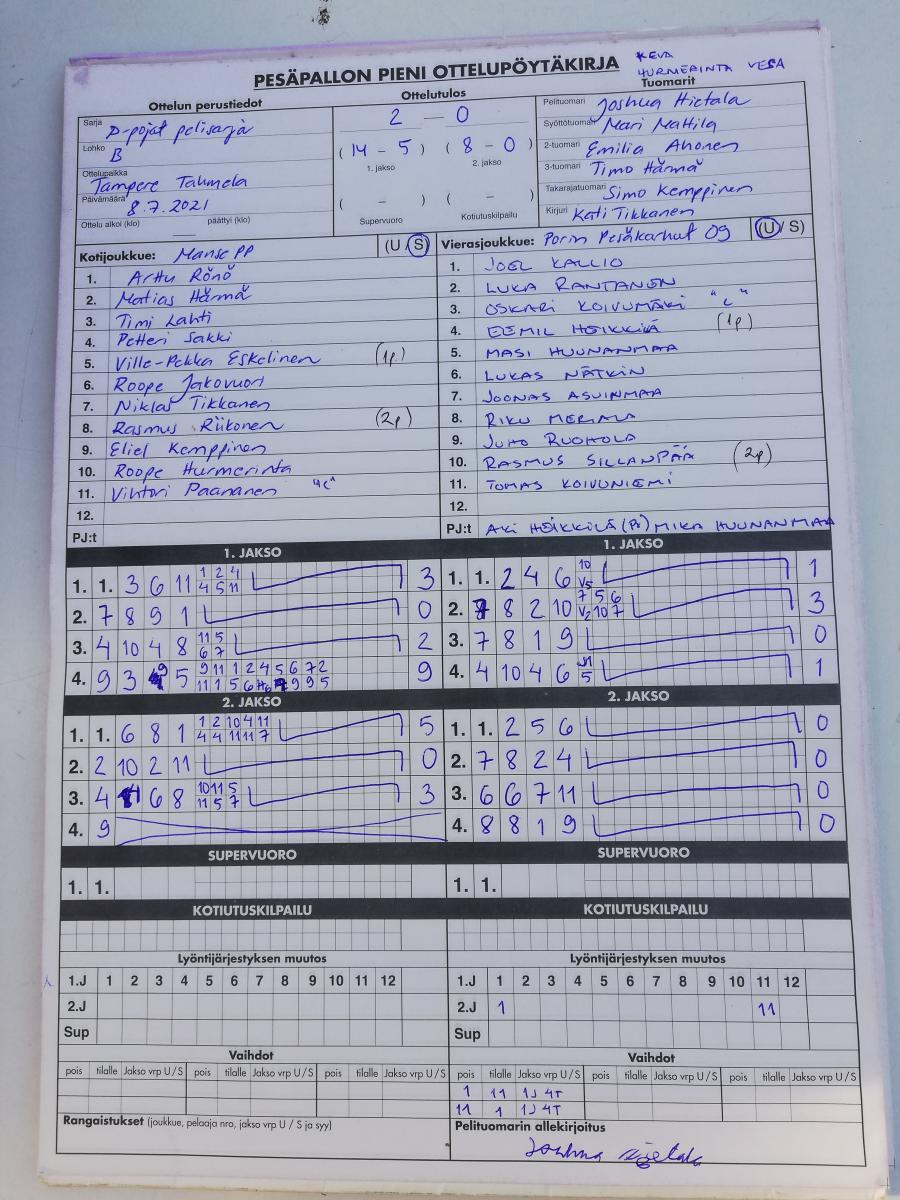 PESÄPALLON PIENI OTTELUPÖYTÄKIRJA
KEVA
HURMERINTA VESA
Ottelun perustiedot
Ottelutulos
Tuomarit
Sarja D-pojat pelisarja
Lohko B
Ottelupaikka Tampere Tahmela
Päivämäärä 8.7.2021
Ottelu alkoi (klo) päättyi (klo)
2 – 0
( 14 – 5 ) ( 8 – 0 )
1. jakso 2. jakso
( – ) ( – )
Supervuoro Kotiutuskilpailu
Pelituomari Joshua Hietala
Syöttötuomari Mari Mattila
2-tuomari Emilia Ahonen
3-tuomari Timo Härmä
Takarajatuomari Simo Kemppinen
Kirjuri Kati Tikkanen
Kotijoukkue: Manse PP (U / S)
1. Arttu Rönö
2. Matias Härmä
3. Timi Lahti
4. Petteri Sakki
5. Ville-Pekka Eskelinen (1p)
6. Roope Jakovuori
7. Niklas Tikkanen
8. Rasmus Riikonen (2p)
9. Eliel Kemppinen
10. Roope Hurmerinta
11. Vihtori Paananen "C"
12.
PJ:t
Vierasjoukkue: Porin Pesäkarhut 09 (U / S)
1. JOEL KALLIO
2. LUKA RANTANEN
3. OSKARI KOIVUMÄKI "C"
4. EEMIL HEIKKILÄ (1p)
5. MASI HUUNANMAA
6. LUKAS NÄTKIN
7. JOONAS ASUINMAA
8. RIKU MERILÄ
9. JUHO RUOHOLA
10. RASMUS SILLANPÄÄ (2p)
11. TOMAS KOIVUNIEMI
12.
PJ:t AKI HEIKKILÄ (PJ) MIKA HUUNANMAA
1. JAKSO
1. 1. 3 6 11 1 2 4 3
4 5 11
2. 7 8 9 1 0
3. 4 10 4 8 11 5 2
6 7
4. 9 3 9 5 9 11 1 2 4 5 6 7 2 9
11 1 5 6 H6 9 9 5
1. JAKSO
1. 1. 2 4 6 10 1
V5
2. 8 2 10 7 5 6 3
V2 10 7
3. 7 8 1 9 0
4. 4 10 4 6 1
5
2. JAKSO
1. 1. 6 8 1 1 2 10 4 11 5
4 4 11 11 7
2. 2 10 2 11 0
3. 4 6 8 10 11 5 3
11 5 7
4. 9
2. JAKSO
1. 1. 2 5 6 0
2. 7 8 2 4 0
3. 6 6 7 11 0
4. 8 8 1 9 0
SUPERVUORO
1. 1.
SUPERVUORO
1. 1.
KOTIUTUSKILPAILU
KOTIUTUSKILPAILU
Lyöntijärjestyksen muutos
1.J 1 2 3 4 5 6 7 8 9 10 11 12
2.J
Sup
Lyöntijärjestyksen muutos
1.J 1 2 3 4 5 6 7 8 9 10 11 12
2.J 1 11
Sup
Vaihdot
pois tilalle Jakso vrp U / S pois tilalle Jakso vrp U / S pois tilalle Jakso vrp U / S
Vaihdot
pois tilalle Jakso vrp U / S pois tilalle Jakso vrp U / S pois tilalle Jakso vrp U / S
1 11 1J 4T
11 1 1J 4T
Rangaistukset (joukkue, pelaaja nro, jakso vrp U / S ja syy)
Pelituomarin allekirjoitus